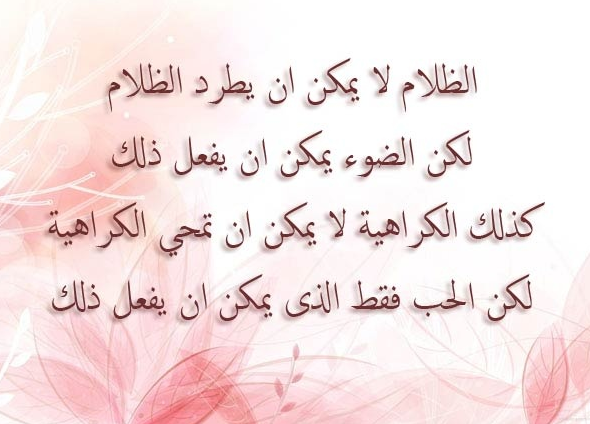 الظلام لا يمكن ان يطرد الظلام
لكن الضوء يمكن ان يفعل ذلك
كذلك الكراهية لا يمكن ان تمحي الكراهية
لكن الحب فقط الذى يمكن ان يفعل ذلك